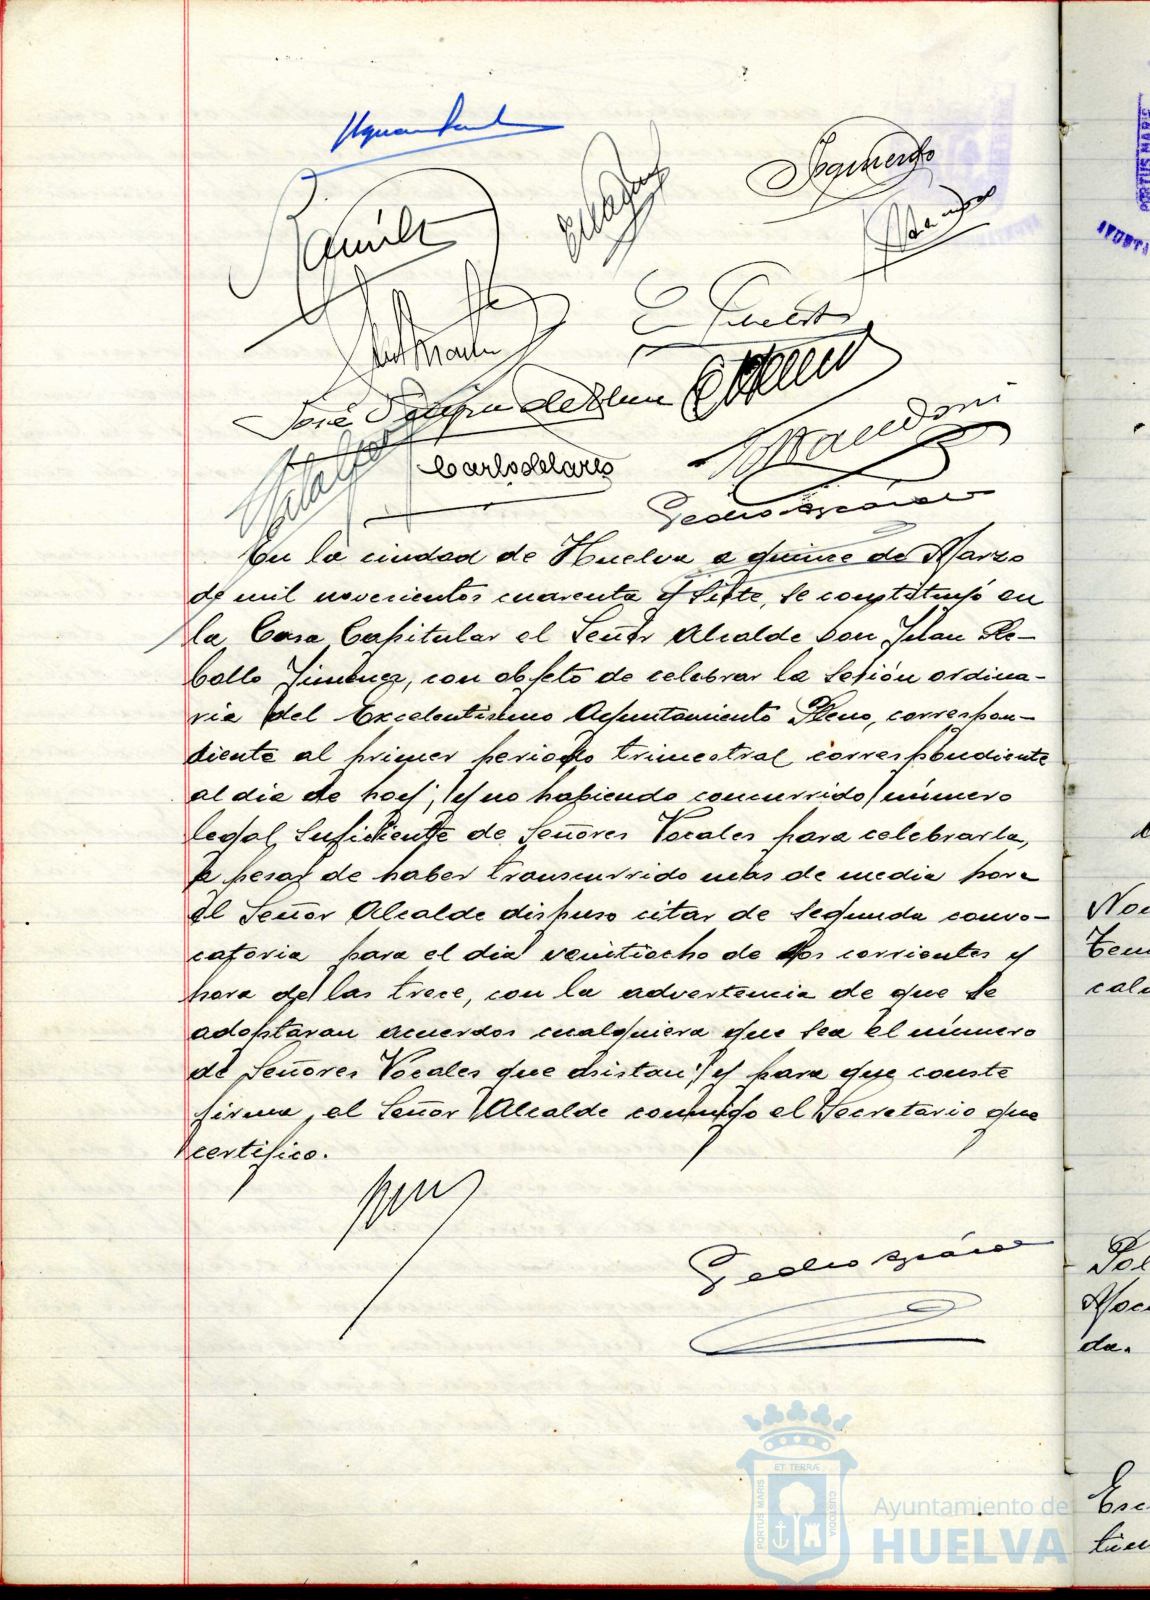 José
Carlos
Pedro
En la ciudad de Huelva a quince de Marzo
de mil novecientos cuarenta y siete, se constituyó en
la Casa Capitular el Señor Alcalde Don Juan Re-
bollo Jimenez, con objeto de celebrar la sesión ordina-
ria del Excelentisimo Ayuntamiento Pleno, correspon-
diente al primer periodo trimestral correspondiente
al dia de hoy; y no habiendo concurrido número
legal suficiente de Señores Vocales para celebrarla,
a pesar de haber transcurrido más de media hora
el Señor Alcalde dispuso citar de segunda convo-
catoria para el dia veintiocho de los corrientes y
hora de las trece, con la advertencia de que se
adoptaran acuerdos cualquiera que sea el número
de Señores Vocales que asistan; y para que conste
firma, el Señor Alcalde conmigo el Secretario que
certifico.
Pedro
ET TERRÆ
PORTUS MARIS
CUSTODIA
Ayuntamiento de
HUELVA
PORTUS MARIS